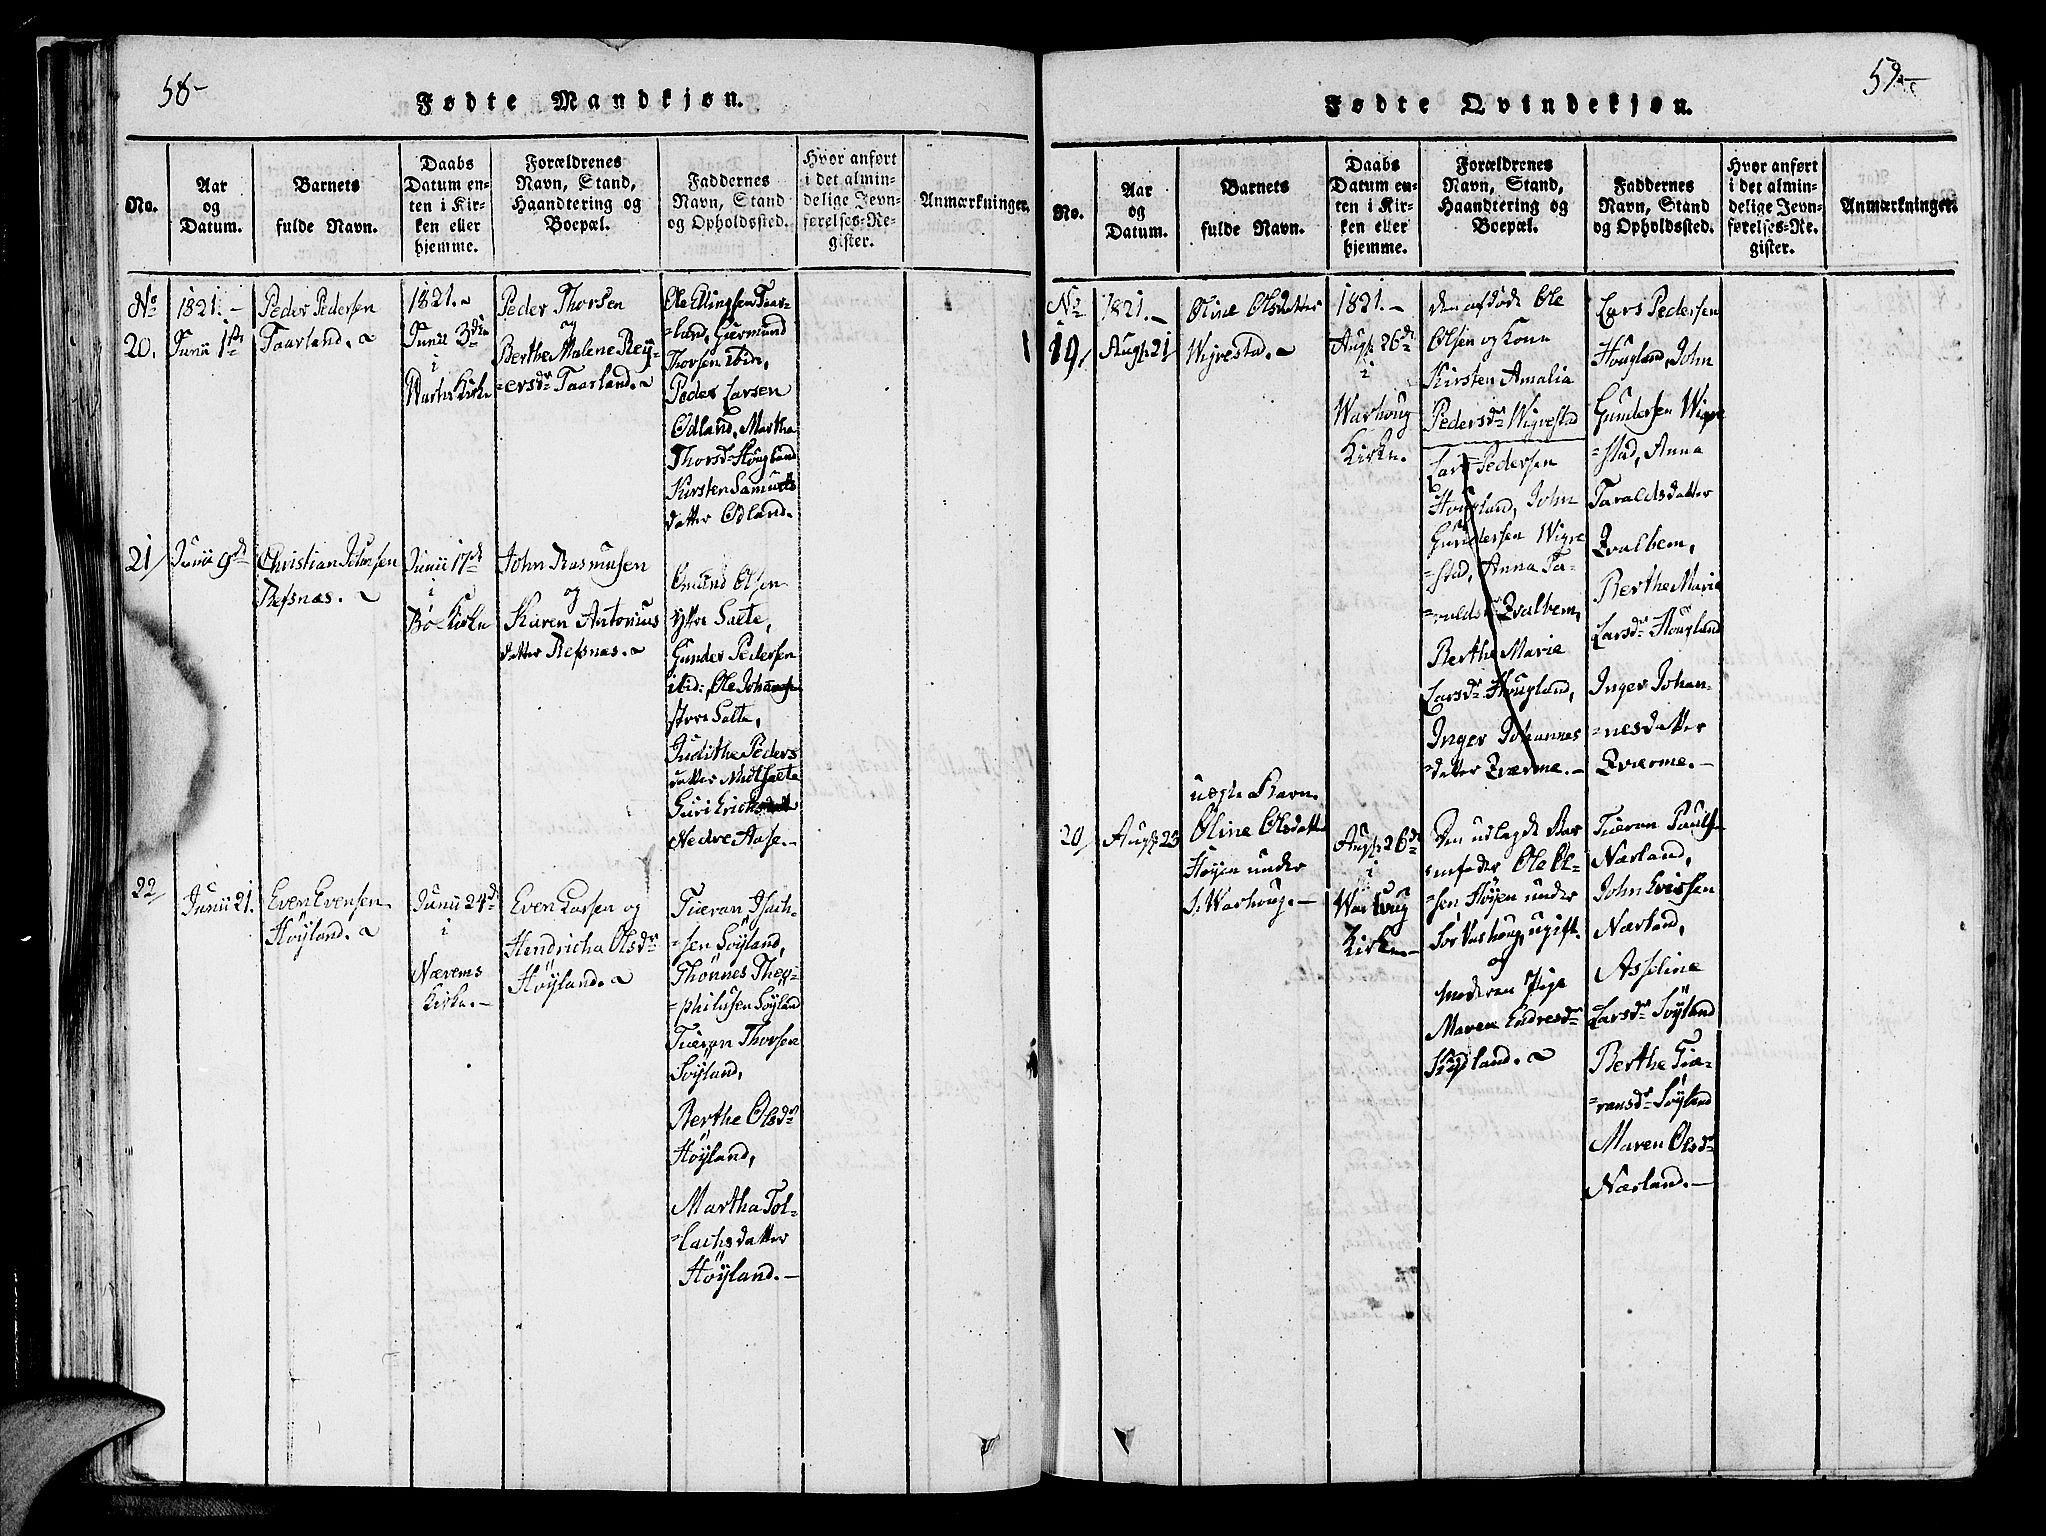 58-
Fødte Mandkjøn.
No.
Aar
og
Datum.
Barnets
fulde Navn.
Daabs
Datum en-
ten i Kir-
ken eller
hjemme.
Forældrenes
Navn, Stand,
Haandtering og
Boepæl.
Faddernes
Navn, Stand
og Opholdssted.
Hvor anført
i det almin-
delige Jevn-
førelses-Re-
gister.
Anmærkninger.
No
20.
1821.-
Junii 1ste
Peder Pedersen
Taarland.
1821.
Junii 3die
i
Warh. Kirke
Peder Thorsen
og
Berthe Malene Rey-
=ersdr Taarland.
Ole Ellingsen Taar-
=land, Gurmund
Thorsen ibid.,
Peder Larsen
Odland, Martha
Thorsdr Hougland
Kirsten Samuels
datter Odland.
21/
Junii 9de
Christian Johnsen
Refsnæs.
Junii 17de
i
Bö Kirke
John Rasmusen
og
Karen Antonius
datter Refsnæs.
Omund Olsen
yttre Salte,
Gunder Pedersen
ibid:, Ole Johannesen
store Salte,
Judithe Peders
datter Midtsalte
Guri Erichsdatter
Nedre Aase.-
22/
Junii 21.
Even Evensen
Höyland.
Junii 24de
i
Nærems
Kirke.-
Even Larsen og
Hendricha Olsdr
Höyland.
Tiæran Isach-
=sen Söyland,
Thönnes Theo-
=philusen Söyland
Tiæran Thorsen
Söyland,
Berthe Olsdr
Höyland,
Martha Tol-
=lachsdatter
Höyland.-
59
Fødte Qvindekjøn.
No.
Aar
og
Datum.
Barnets
fulde Navn.
Daabs
Datum en-
ten i Kir-
ken eller
hjemme.
Forældrenes
Navn, Stand,
Haandtering og
Boepæl.
Faddernes
Navn, Stand
og Opholdssted.
Hvor anført
i det almin-
delige Jevn-
førelses-Re-
gister.
Anmærkninger.
No
19/
1821.-
Augst 21
Oline Olsdatter
Wigrestad.
1821.-
Augst 26de
i
Warhoug
Kirke.
den afdöde Ole
Olsen og Kone
Kirsten Amalia
Pedersdr Wigrestad
Lars Pedersen
Hougland, John
Gundersen Wigre
=stad, Anna Ta-
=raldsdr Qvalbem,
Berthe Marie
Larsdr Hougland,
Inger Johannes
datter Qværme.-
Lars Pedersen
Hougland, John
Gundersen Wigre
=stad, Anna
Taraldsdatter
Qvalbem,
Berthe Marie
Larsdr Hougland
Inger Johan-
=nesdatter
Qværme.-
20/
Augst 23
uægte Barn.
Oline Olsdatter
Höyen under
S. Warhoug.-
Augst 26de
i
Warhoug
Kirke.-
Den udlagde Bar
=nefader Ole Ol-
=sen Höyen under
Sör Varhoug, ugift.
og
moderen Pige
Maren Endresdr
Tiæran Paulsen
Nærland,
John Evissen
Nærland,
Asseline
Larsdr Söyland
Berthe Tiæ-
=ransdr Söyland
Maren Olsdr
Nærland.-